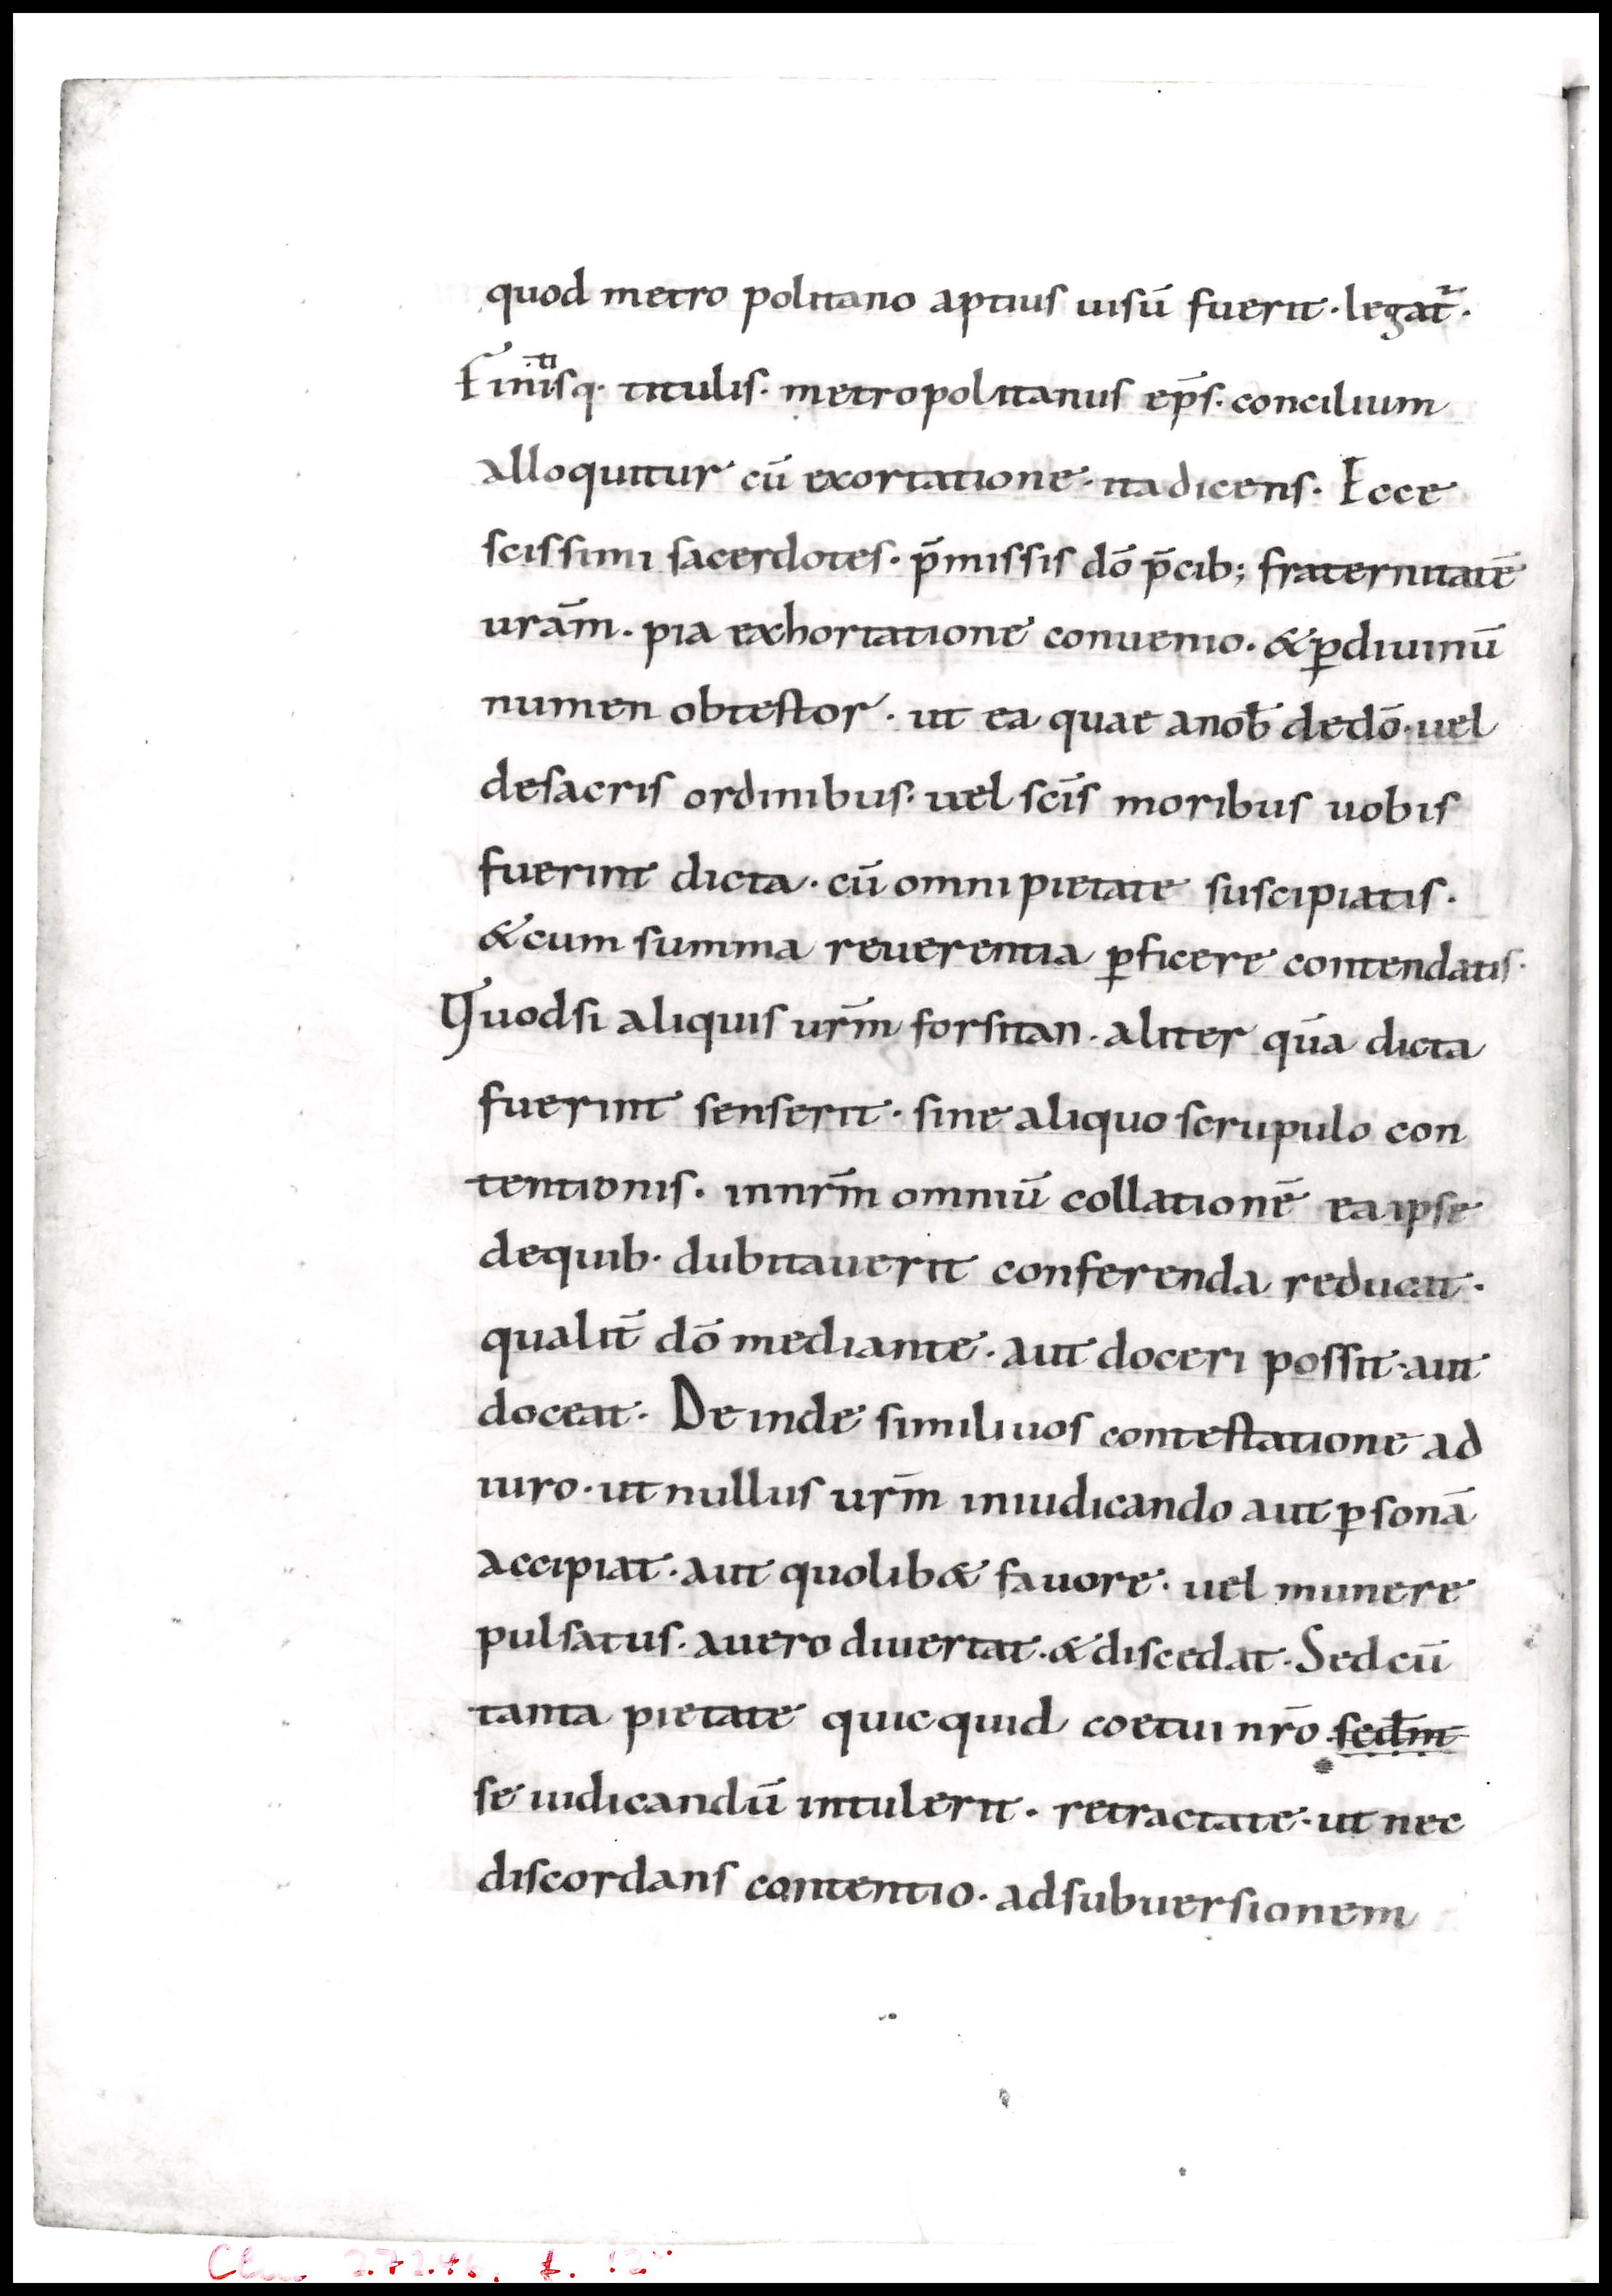 quod metro politano aptius uisū fuerit · legat̄ ·
Finitisq· titulis · metropolitanus ep̄s · concilium
alloquitur cū exortatione · ita dicens · Ecce
scissimi sacerdotes · p̄missis dō p̄cib; fraternitatē
urām · pia exhortatione conuenio · & ꝑdiuinū
numen obtestor · ut ea quae anob̄ dedō · uel
desacris ordinibus · uel sc̄is moribus uobis
fuerint dicta · cū omni pietate suscipiatis ·
& cum summa reuerentia ꝑficere contendatis ·
Quodsi aliquis ur̄m forsitan · aliter qūa dicta
fuerint senserit · sine aliquo scrupulo con
tentionis · innr̄m omniū collationē ea ipse
dequib· dubitauerit conferenda reducat ·
qualit̄ dō mediante · aut doceri possit · aut
doceat · Deinde simili uos contestatione ad
iuro · ut nullus ur̄m iniudicando aut ꝑsonā
accipiat · aut quolib& fauore · uel munere
pulsatus · auero diuertat · & discedat · Sed cū
tanta pietate quicquid coetui nr̄o
se iudicandū intulerit · retractate · ut nec
discordans contentio · adsubuersionem
Clm 27246, f. 12